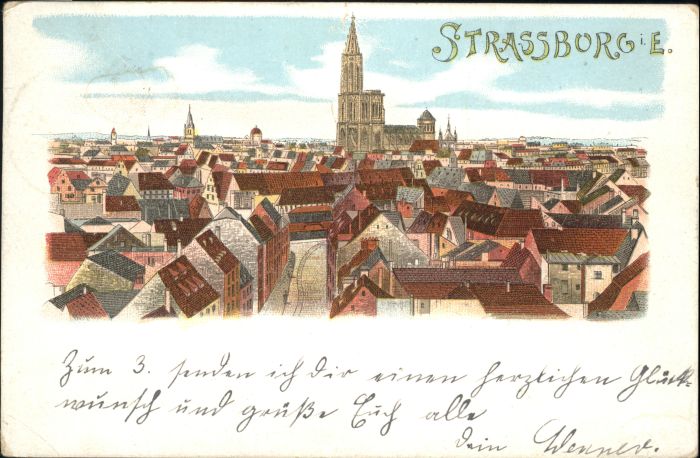 STRASSBURG i E.
Zum 3. senden ich dir einen herzlichen Glück-
wunsch und grüße Euch alle
dein Werner.